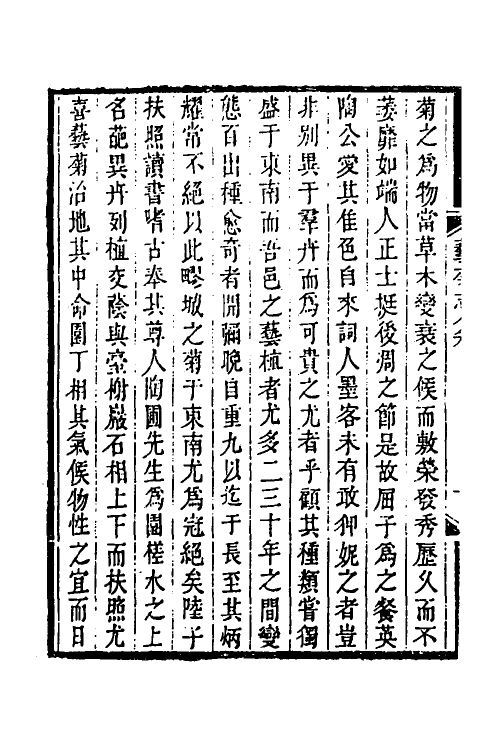 菊之爲物當草木變衰之候而敷榮發秀歷久而不
萎靡如端人正士挺後凋之節是故屈子爲之餐英
陶公愛其佳色自來詞人墨客未有敢仰妮之者豈
非別異于羣卉而爲可貴之尤者乎顧其種類嘗獨
盛于東南而吾邑之藝植者尤多二三十年之間變
態百出種愈奇者開彌晚自重九以迄于長至其炳
耀常不絕以此嘐城之菊于東南尤爲冠絕矣陸子
扶照讀書嗜古奉其尊人陶圃先生爲園槎水之上
名葩異卉列植交蔭與臺榭巖石相上下而扶照尤
喜藝菊治地其中命園丁相其氣候物性之宜而日
藝菊志